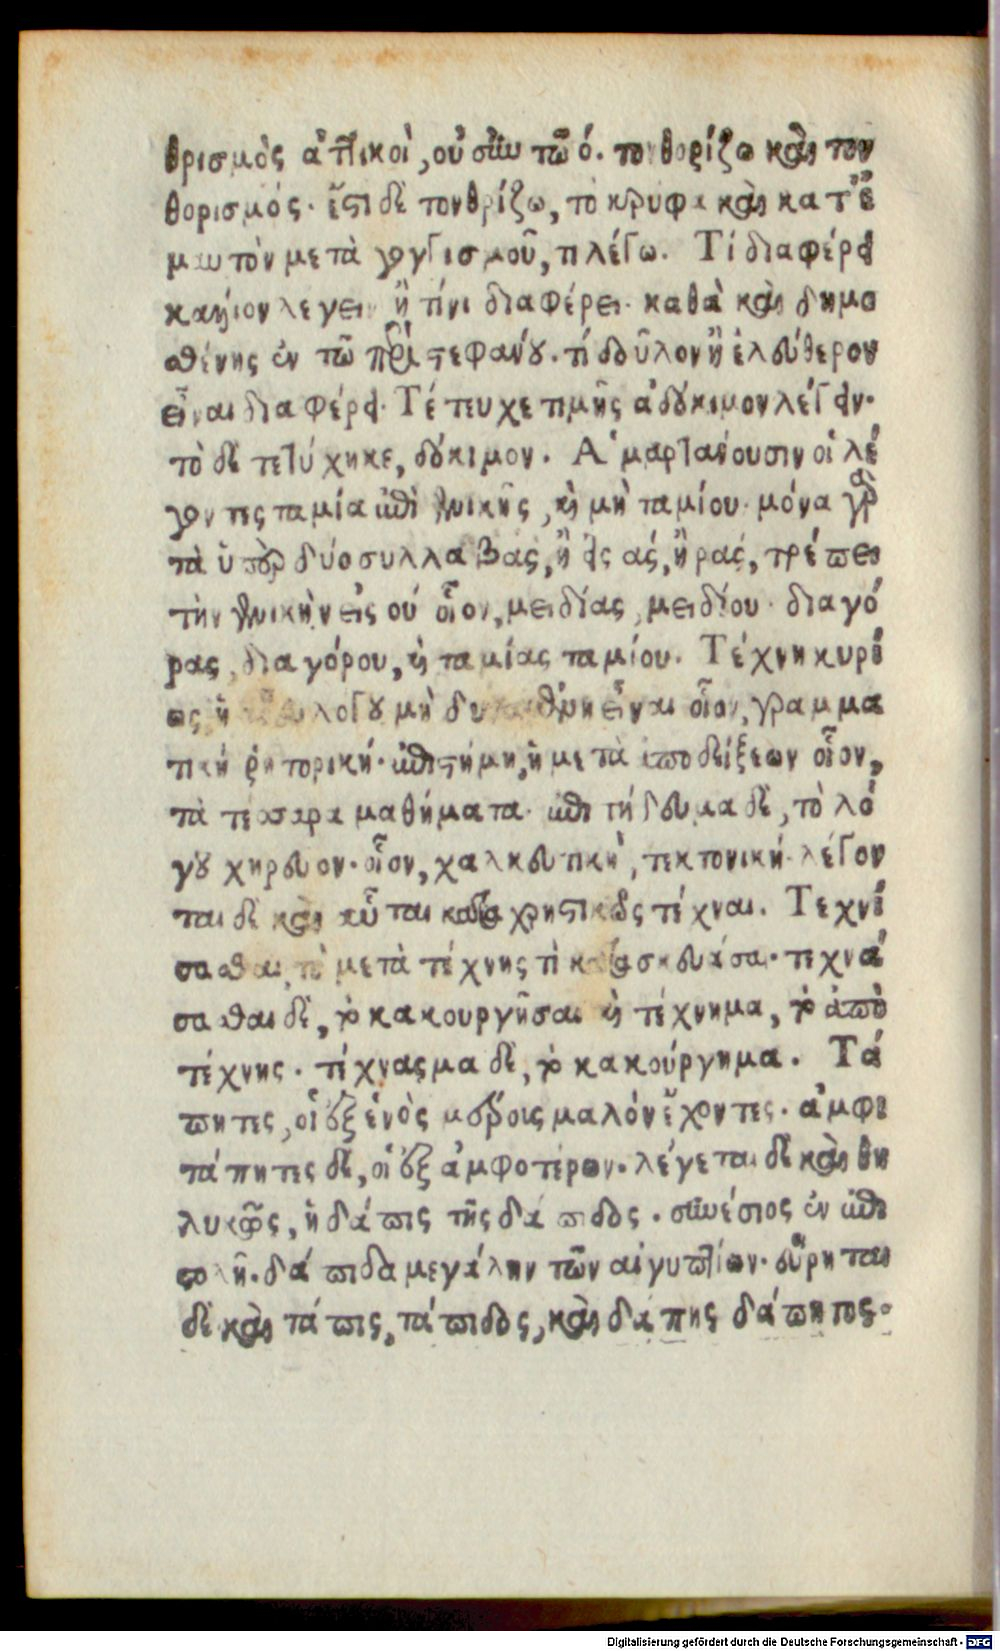 θρισμὸς ἀττικοὶ, οὐ σὺν τῶ ό. τονθορίζω καὶ τον
θορισμός. ἔστι δὲ τονθρίζω, τὸ κρύφα καὶ κατ' ἐ
μαυτὸν μετὰ γογγισμοῦ, τι λέγω. Τί διαφέρει
κάλλιον λέγειν ἢ τίνι διαφέρει. καθὰ καὶ δημο
σθένης ἐν τῶ περὶ στεφάνου. τί δοῦλον ἢ ἐλεύθερον
εἶναι διαφέρει. Τέτευχε τιμῆς ἀδόκιμον λέγειν.
τὸ δὲ τετύχηκε, δόκιμον. Ἁμαρτάνουσιν οἱ λέ
γοντες ταμία ἐπὶ γενικῆς, καὶ μὴ ταμίου. μόνα γὰρ
τὰ ὑπὲρ δύο συλλαβὰς, ἢ εἰς ας, ἢ ρας, τρέπει
τὴν γενικὴν εἰς ου οἷον, μειδίας μειδίου. διαγό
ρας, διαγόρου, καὶ ταμίας ταμίου. Τέχνη κυρί
ως ἡ λόγου μὴ εἶναι οἷον, γραμμα
τικὴ ῥητορική. ἐπιστήμη, ἡ μετὰ ἀποδείξεων οἷον,
τὰ τέσσαρα μαθήματα. ἐπιτήδευμα δὲ, τὸ λό
γου χηρεῦον. οἷον, χαλκευτικὴ, τεκτονική. λέγον
ται δὲ καὶ αὗται καταχρηστικῶς τέχναι. Τεχνί
σασθαι, τὸ μετὰ τέχνης τὶ κατασκευάσαι. τεχνά
σασθαι δὲ, τὸ κακουργῆσαι καὶ τέχνημα, τὸ ἀπὸ
τέχνης. τέχνασμα δὲ, τὸ κακούργημα. Τά
πητες, οἱ ἐξ ἑνὸς μέροις μαλὸν ἔχοντες. ἀμφι
τάπητες δὲ, οἱ ἐξ ἀμφοτέρων. λέγεται δὲ καὶ θη
λυκῶς, ἡ δάπις τῆς δάπιδος. συνέσιος ἐν ἐπι
στολῆ. δάπιδα μεγάλην τῶν αἰγυπτίων. εὕρηται
δὲ καὶ τάπις, τάπιδος, καὶ δάπης δάπητος.
Digitalisierung gefördert durch die Deutsche Forschungsgemeinschaft - DFG